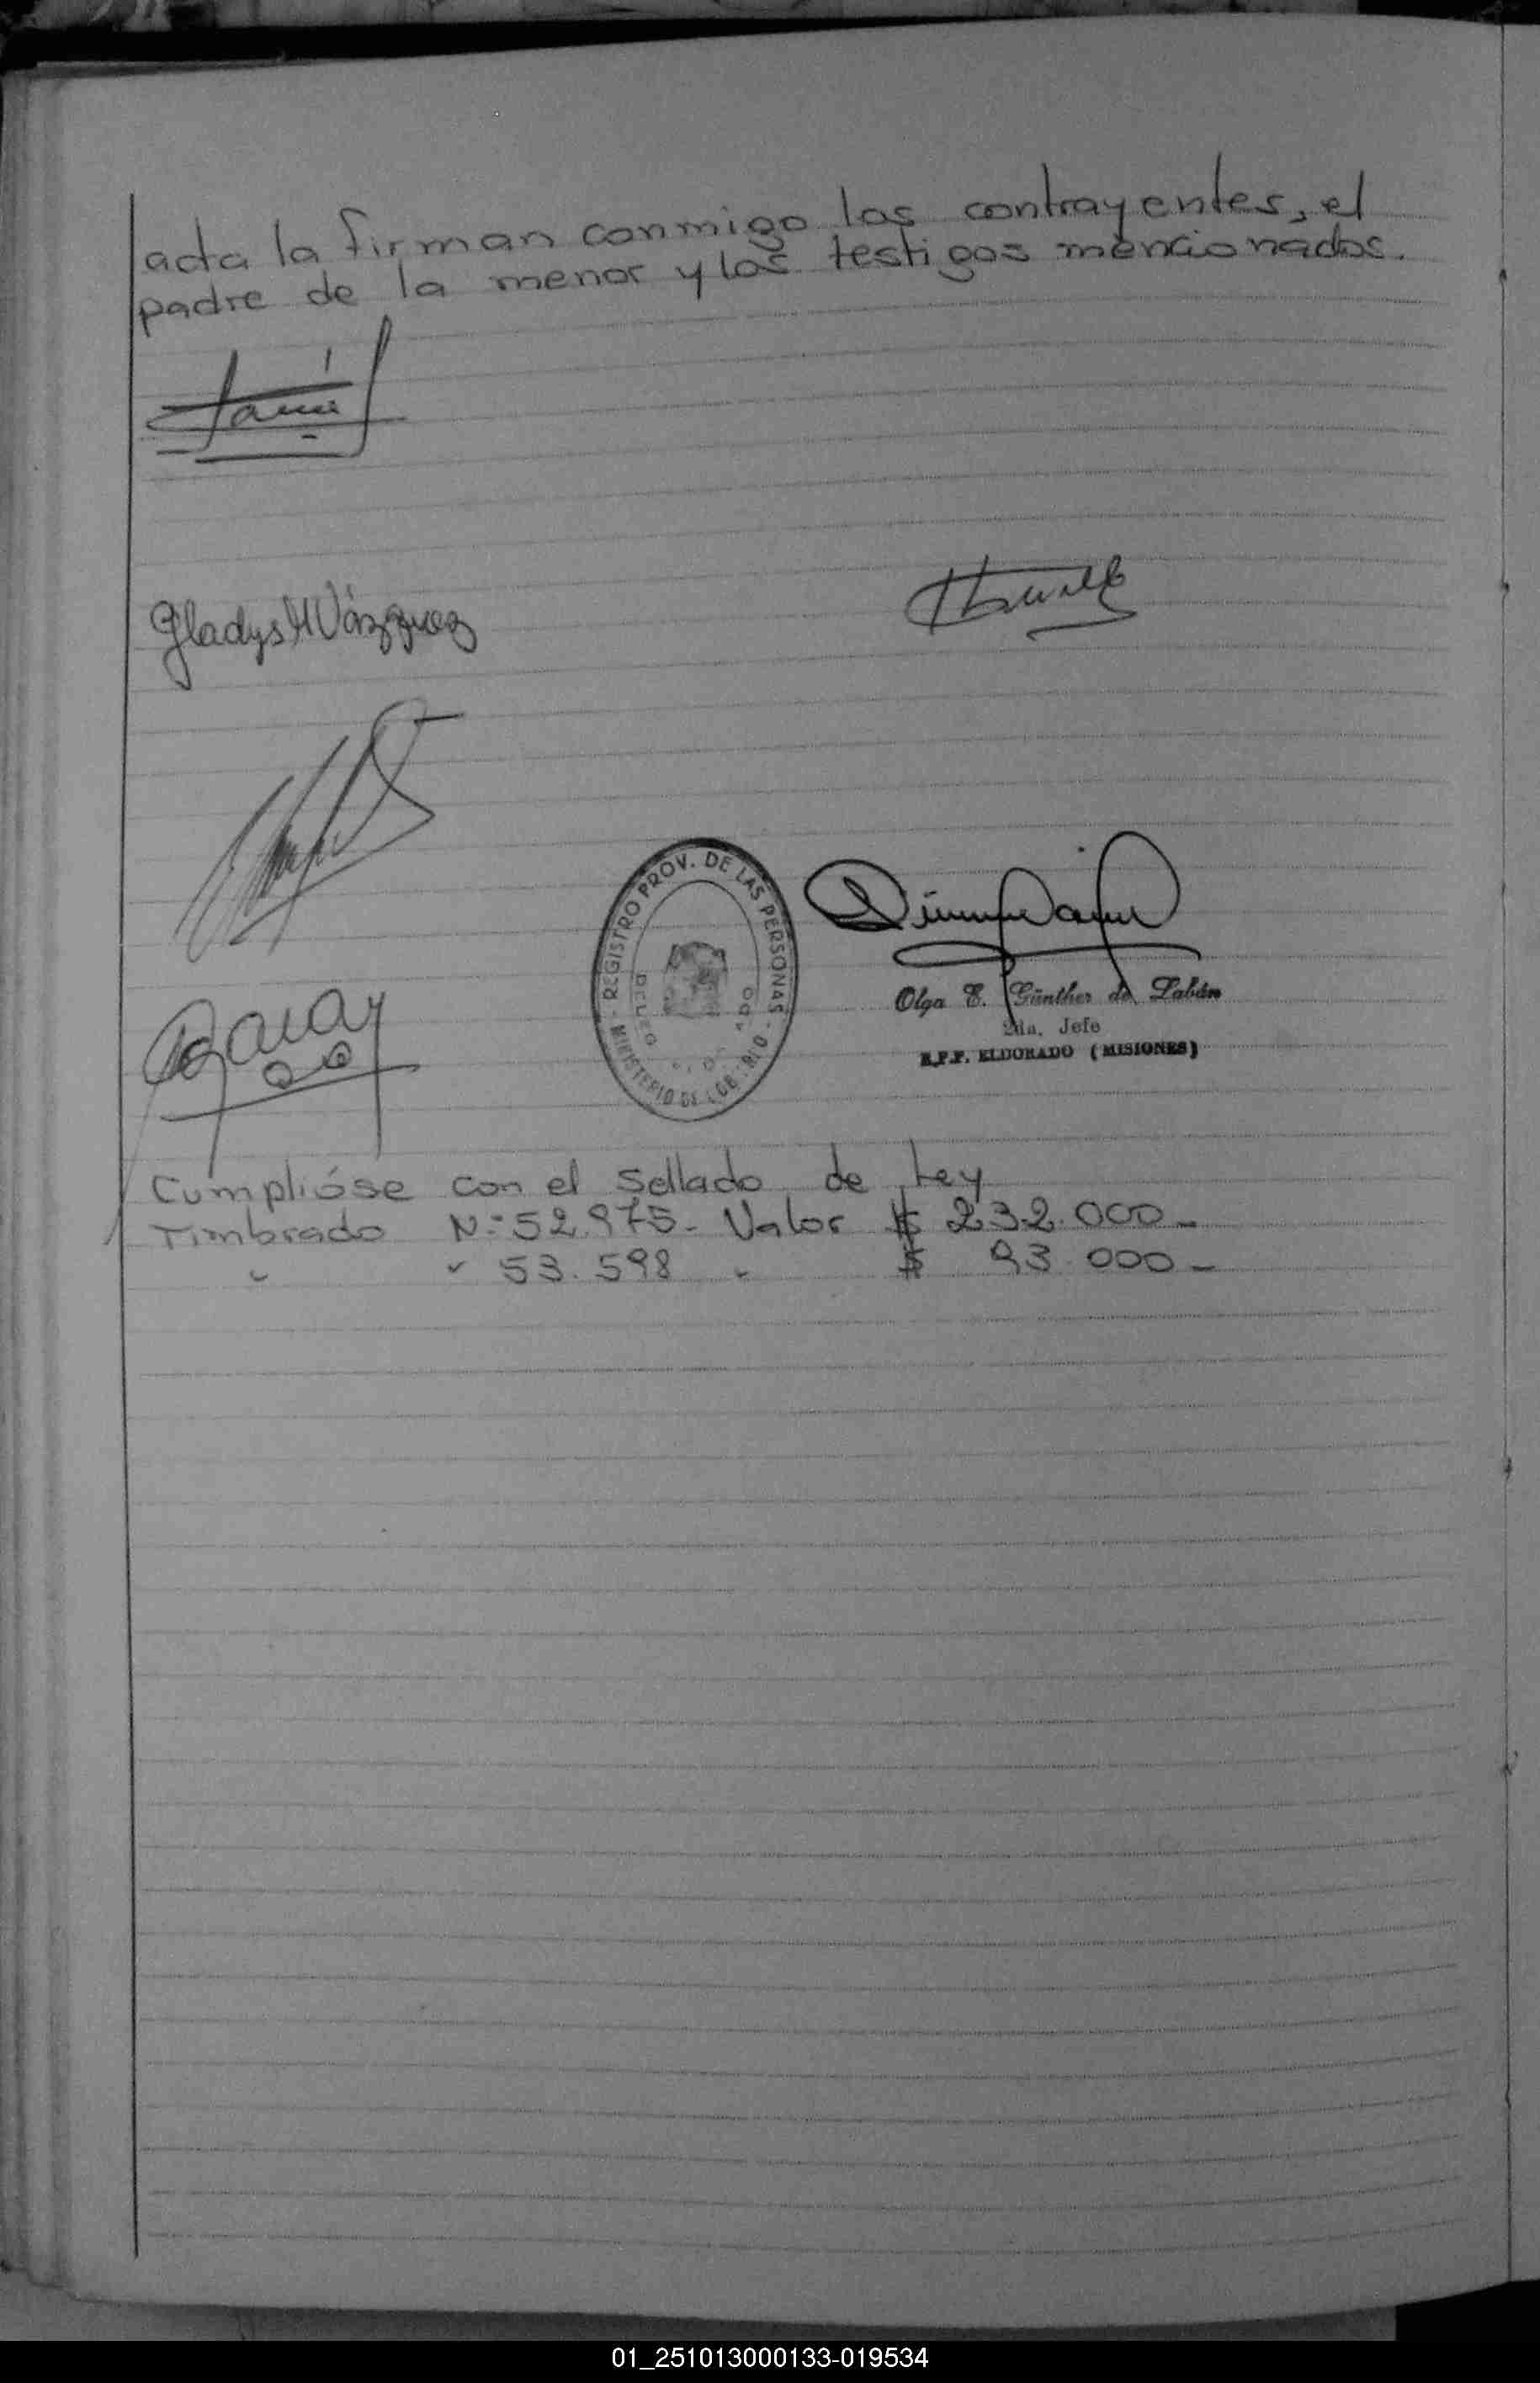 acta la firman conmigo los contrayentes, el
padre de la menor y los testigos mencionados.
Gladys M Vázquez
REGISTRO PROV. DE LAS PERSONAS - MINISTERIO DE GOBIERNO
Olga E. Günther de Labán
2da. Jefe
R.P.P. ELDORADO (MISIONES)
Garay
Cumplióse con el Sellado de Ley
Timbrado N.= 52.975 - Valor $ 232.000 -
" " 53.598 " $ 93.000 -
01_251013000133-019534